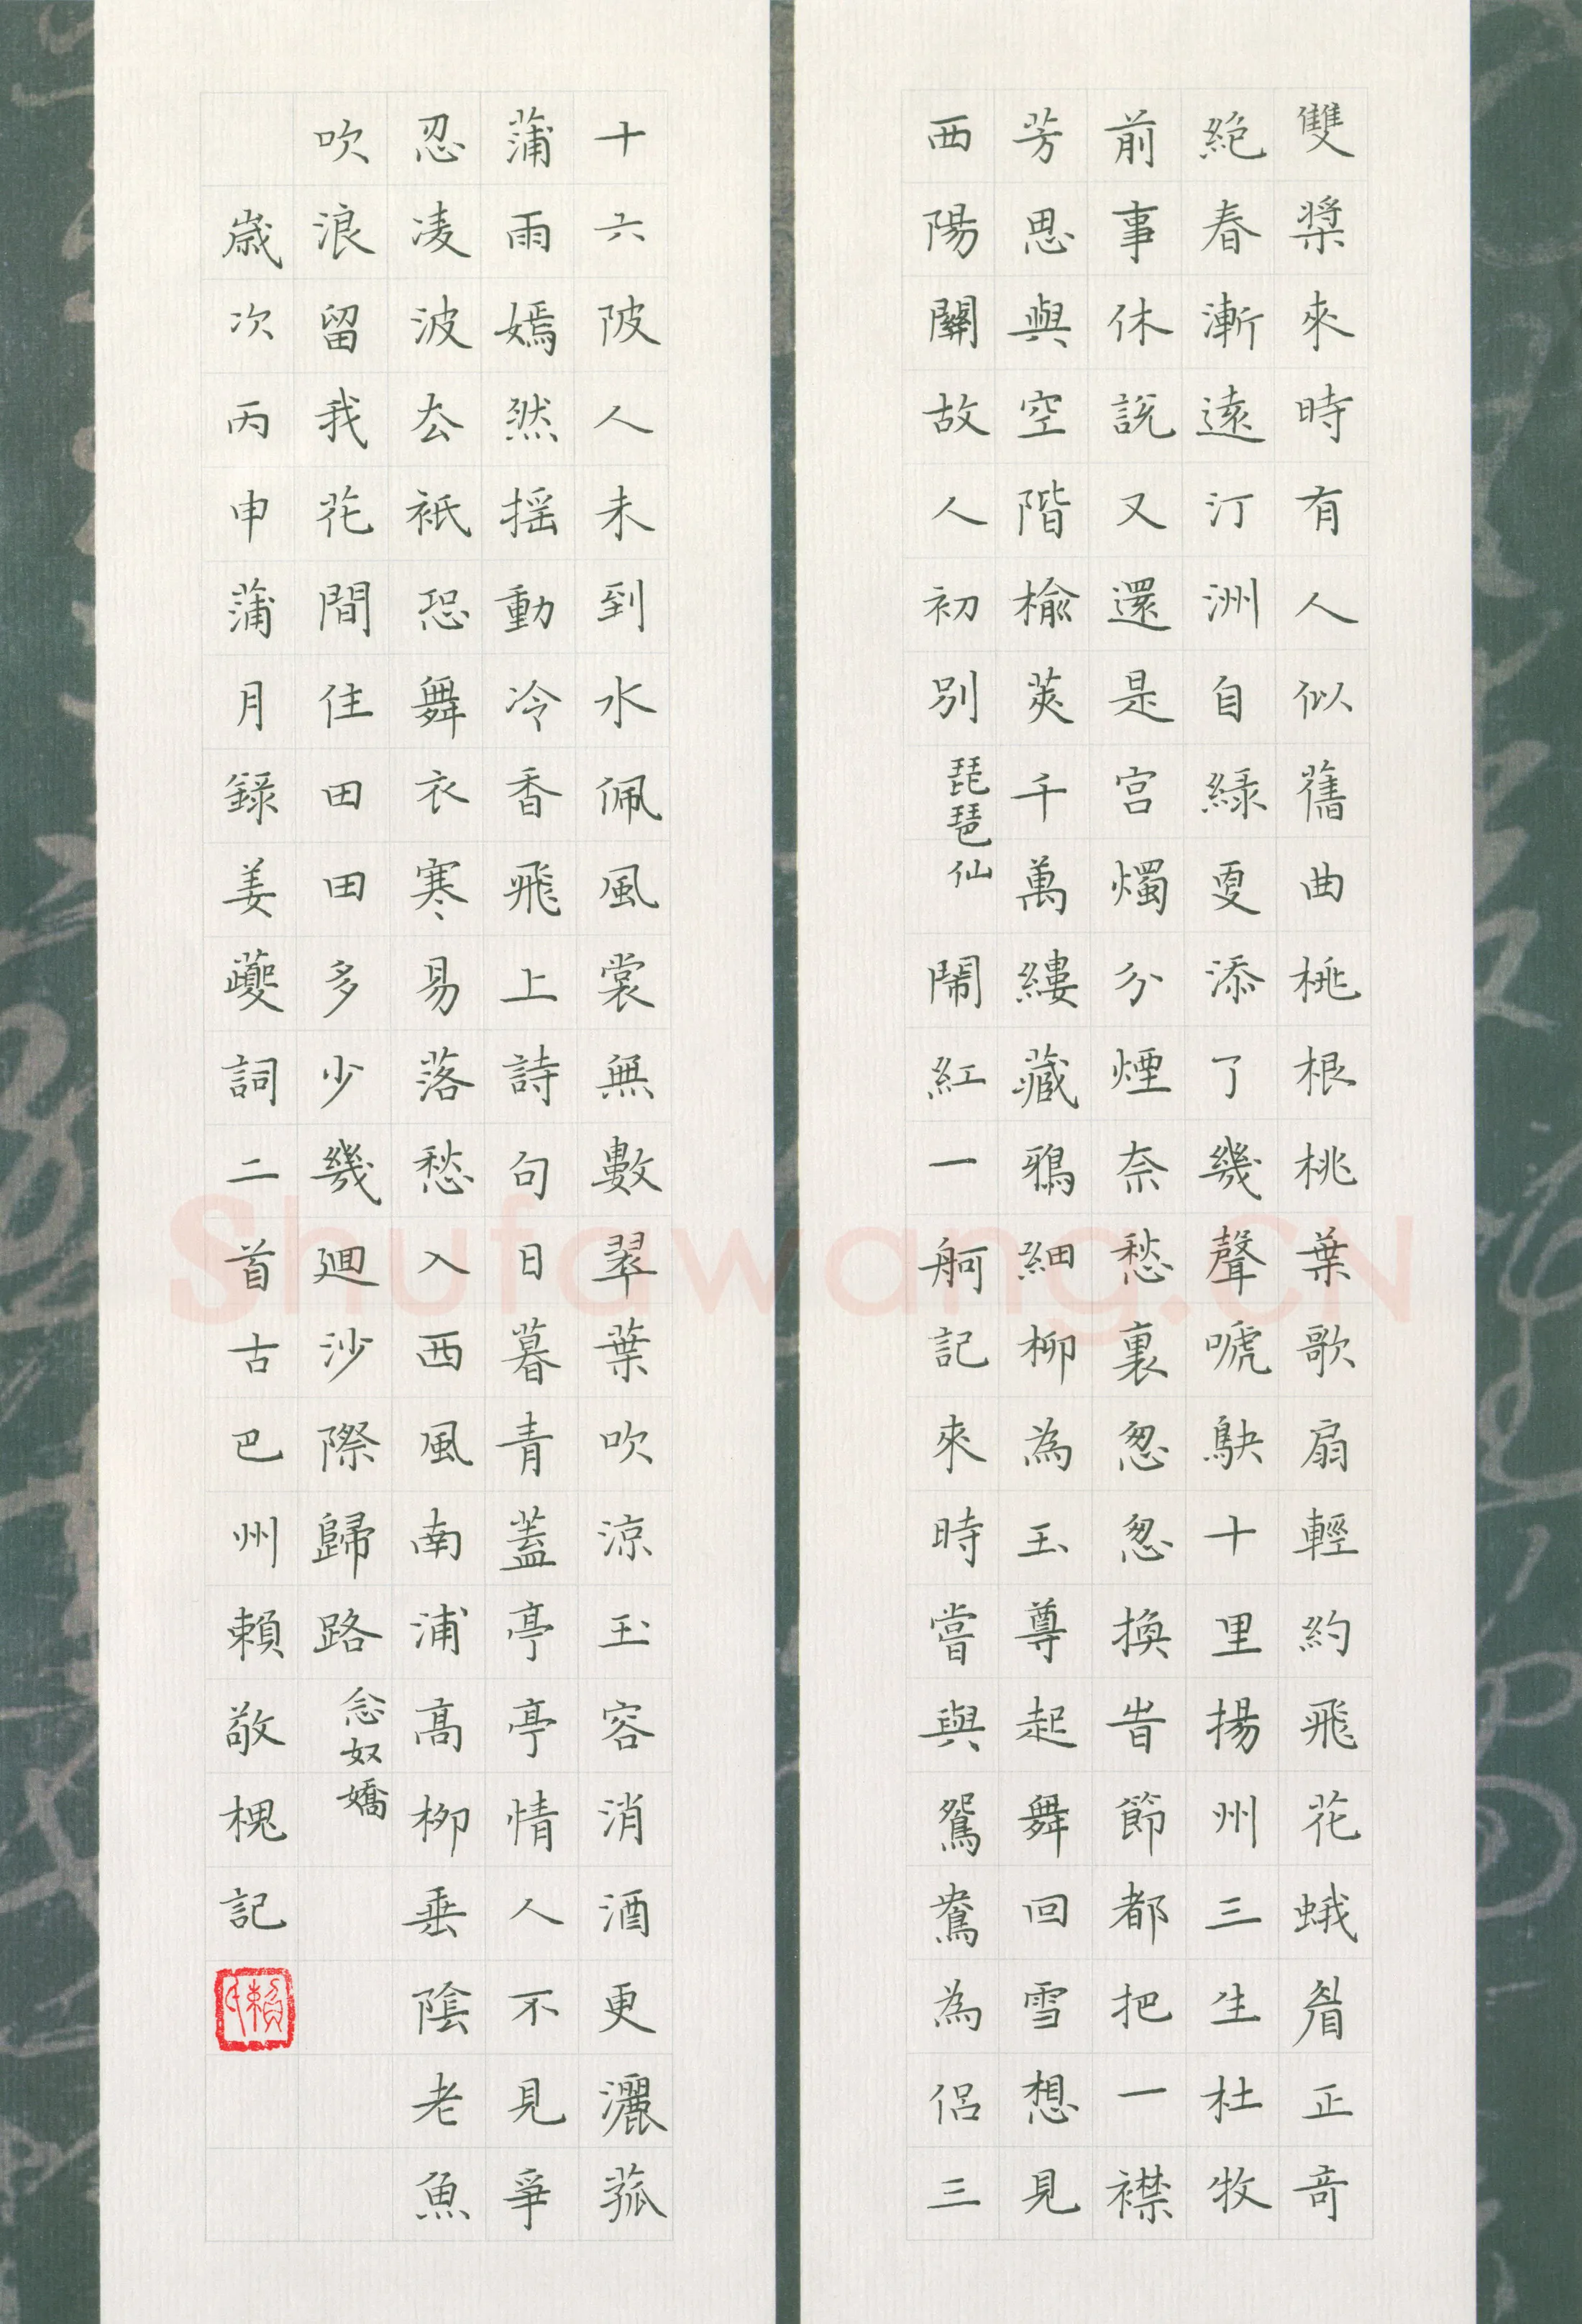 雙槳來時有人似舊曲桃根桃葉歌扇輕約飛花蛾眉正奇
絕春漸遠汀洲自綠更添了幾聲嗁鴃十里揚州三生杜牧
前事休說又還是宮燭分煙奈愁裏怱怱換昔節都把一襟
芳思與空階榆莢千萬縷藏鴉細柳為玉尊起舞回雪想見
西陽關故人初別琵琶仙
鬧紅一舸記來時嘗與鴛鴦為侶三
十六陂人未到水佩風裳無數翠葉吹涼玉容消酒更灑菰
蒲雨嫣然搖動冷香飛上詩句日暮青蓋亭亭情人不見爭
忍凌波去衹恐舞衣寒易落愁入西風南浦高柳垂陰老魚
吹浪留我花間住田田多少幾迴沙際歸路念奴嬌
歲次丙申蒲月錄姜夔詞二首古巴州賴敬槐記
Shufawang.CN